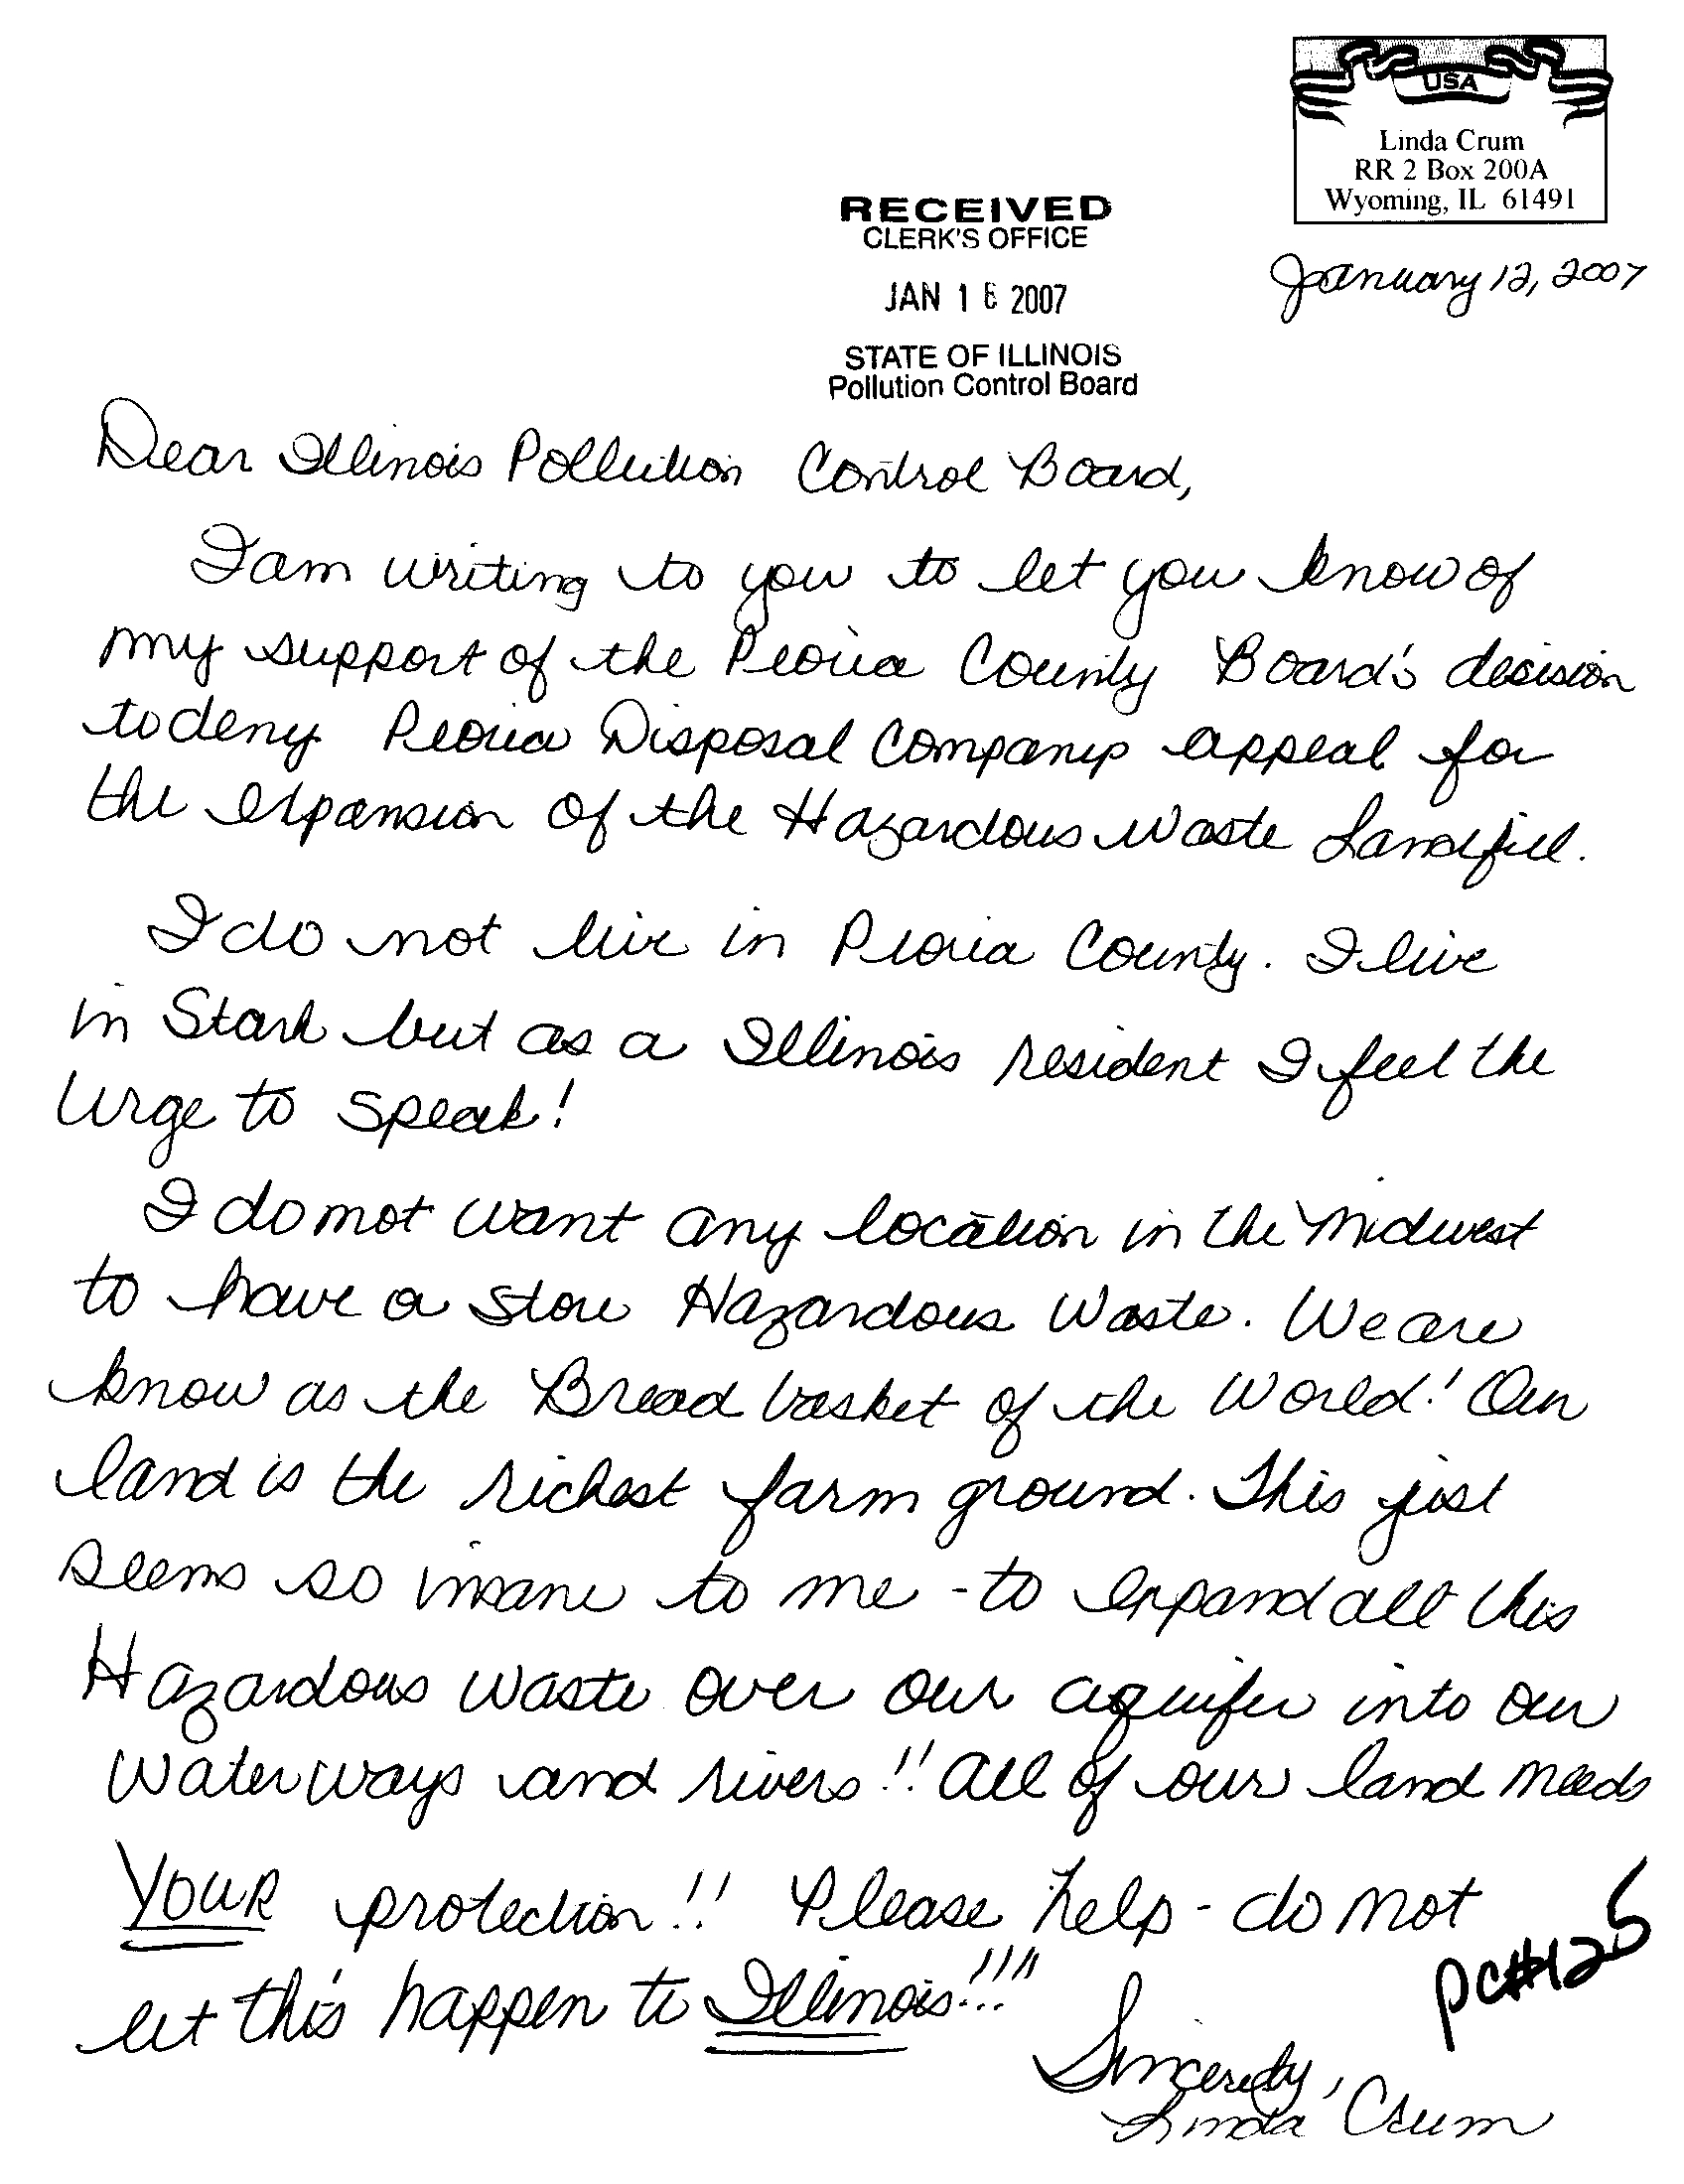 USA
Linda Crum
RR 2 Box 200A
Wyoming, IL 61491
RECEIVED
CLERK'S OFFICE
JAN 16 2007
STATE OF ILLINOIS
Pollution Control Board
January 12, 2007
Dear Illinois Pollution Control Board,
I am writing to you to let you know of
my support of the Peoria County Board's decision
to deny Peoria Disposal Company appeal for
the expansion of the Hazardous Waste Landfill.
I do not live in Peoria County. I live
in Stark but as a Illinois resident I feel the
Urge to speak!
I do not want any location in the Midwest
to have a store Hazardous Waste. We are
know as the Bread basket of the World! Our
land is the richest farm ground. This just
seems so insane to me - to expand all this
Hazardous Waste over our aquifer into our
Waterways and rivers!! All of our land needs
YOUR protection!! Please help - do not
let this happen to Illinois!!!
PC#125
Sincerely,
Linda Crum